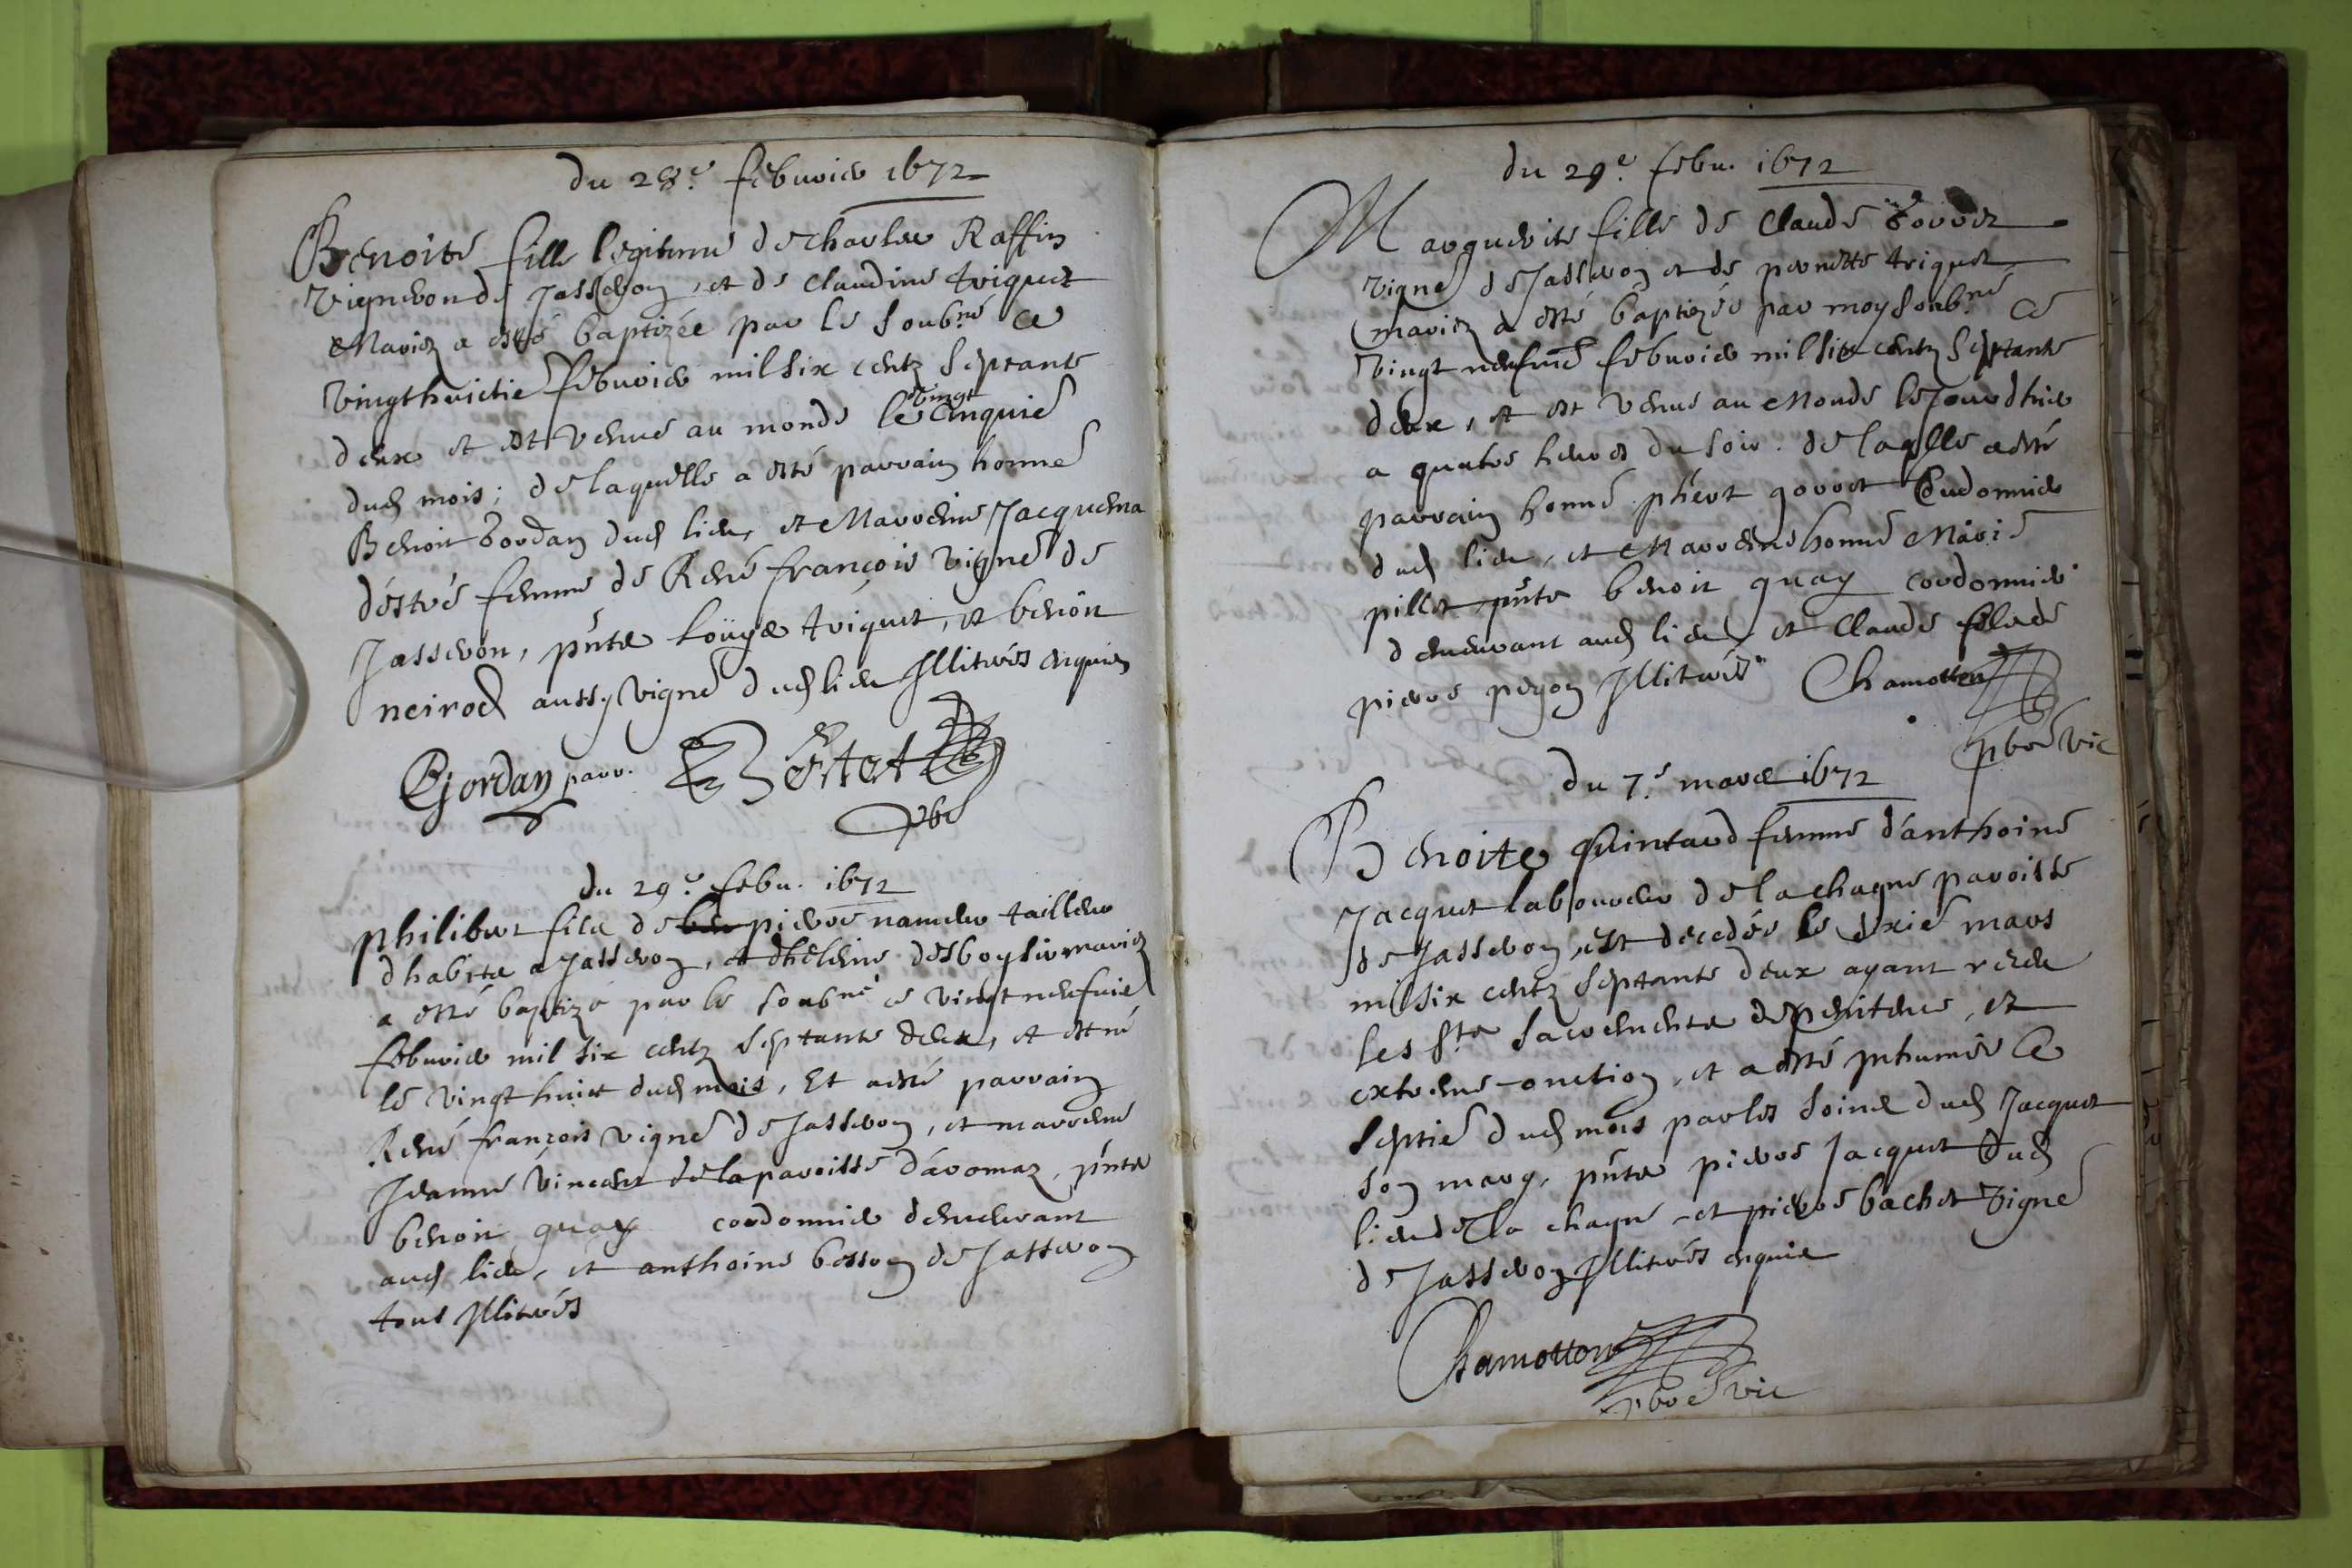 du 28.e febuvier 1672
Benoite fille legitime de charles Raffin
vigneron de Jasseron, et de Claudine triquet
Mariez a esté baptizée par le soubné ce
vingthuictie febuvier mil six centz septante
deux et est venue au monde le vingt cinquie
dud mois; de laquelle a esté parrain honne
Benoit Jordan dud lieu, et Marreine Jacquema
déstré femme de René françois vigne de
Jasseron, pnts Louys triquet, et benoit
neirod aussy vigne dud lieu Illitrés enquis
BJordan parr.
pbre
du 29.e febu. 1672
philibert fils de pierre tailleur
dhabits a Jasseron, et dheleine mariez
a esté baptizé par le soubné ce vingt neufuie
febuvier mil six centz septante deux, et est né
le vingt huict dud mois, Et a esté parrain
René françois vigne de Jasseron, et marreine
Jeanne vincent de la paroisse d'aromaz, pnts
benoit quay cordonnier demeurant
aud lieu, et anthoine bosson de Jasseron
tous Illitrés
du 29.e febu. 1672
Marguerite fille de Claude
vigne de Jasseron et de pernette triquet
mariez a esté baptizée par moy soubné ce
vingt neufuie febuvier mil six centz septante
deux, et est venue au Monde le Jourdhuy
a quatre heures du soir. de laqlle a esté
parrain honne phert Cordonnier
dud lieu, et Marreine honne Marie
pillot pnts benoit quay cordonnier
demeurant aud lieu, et Claude fils de
pierre pegon Illitrés Chamotton
pbre vic
du 7.e mars 1672
Benoite quintard femme d'anthoine
Jacquet laboureur de la chagne paroisse
de Jasseron, est decedée le sixie mars
mil six centz septante deux ayant receu
les sts sacrements de penitence, et
extreme-onction, et a esté Inhumée le
septie dud mois par les soins dud Jacquet
son mary, pnts pierre Jacquet dud
lieu de la chagne et pierre bachet vigne
de Jasseron Illitrés enquis
Chamotton
pbre vic